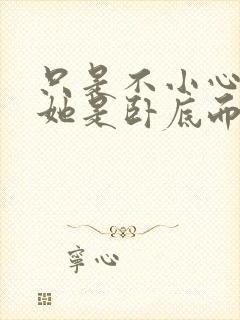 只是不小心
她是卧底而
寜心